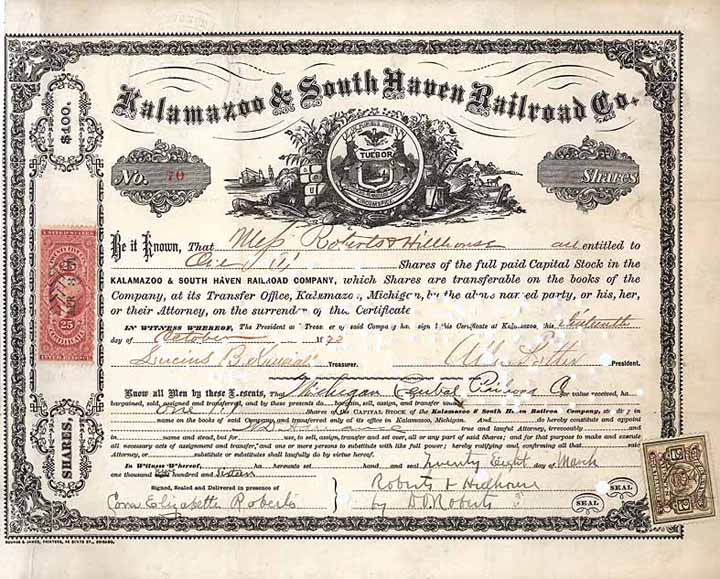 Kalamazoo & South Haven Railroad Co.
$100.
TUEBOR
CIRCUMSPICE
No. 70
Shares
Be it Known, That Mess Roberts & Hillhouse are entitled to
One (1) Shares of the full paid Capital Stock in the
KALAMAZOO & SOUTH HAVEN RAILROAD COMPANY, which Shares are transferable on the books of the
Company, at its Transfer Office, Kalamazoo, Michigan, by the above named party, or his, her,
or their Attorney, on the surrender of the Certificate
IN WITNESS WHEREOF, The President and Treasurer of said Company have signed this Certificate at Kalamazoo, this
day of October 1870
Lucius B. Treasurer. President.
25 25
Know all Men by these Presents, That Michigan Central Railroad Co for value received, ha
bargained, sold, assigned and transferred, and by these presents do bargain, sell, assign and transfer unto
One Shares of the CAPITAL STOCK of the Kalamazoo & South Haven Railroad Company, standing in
name on the books of said Company, and transferred only at its office in Kalamazoo, Michigan. And do hereby constitute and appoint
true and lawful Attorney, irrevocably and in
name and stead, but for use, to sell, assign, transfer and set over, all or any part of said Shares; and for that purpose to make and execute
all necessary acts of assignment and transfer, and one or more persons to substitute with like full power; hereby ratifying and confirming all that said
Attorney, or substitute or substitutes shall lawfully do by virtue hereof.
In Witness Whereof, ha hereunto set hand and seal twenty Eight day of March
one thousand eight hundred and
SHARES,
Signed, Sealed and Delivered in presence of
Roberts & Hillhouse
SEAL
Cora Elizabeth Roberts
by D.D. Roberts
SEAL